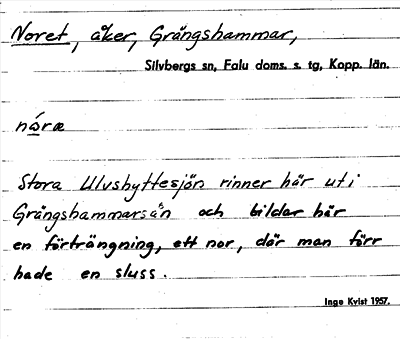 Noret, åker, Grängshammar,
Silvbergs sn, Falu doms. s. tg, Kopp. län.
nóræ
Stora Ulvshyttesjön rinner här ut i
Grängshammarsån och bildar här
en förträngning, ett nor, där man förr
hade en sluss.
Inge Kvist 1957.